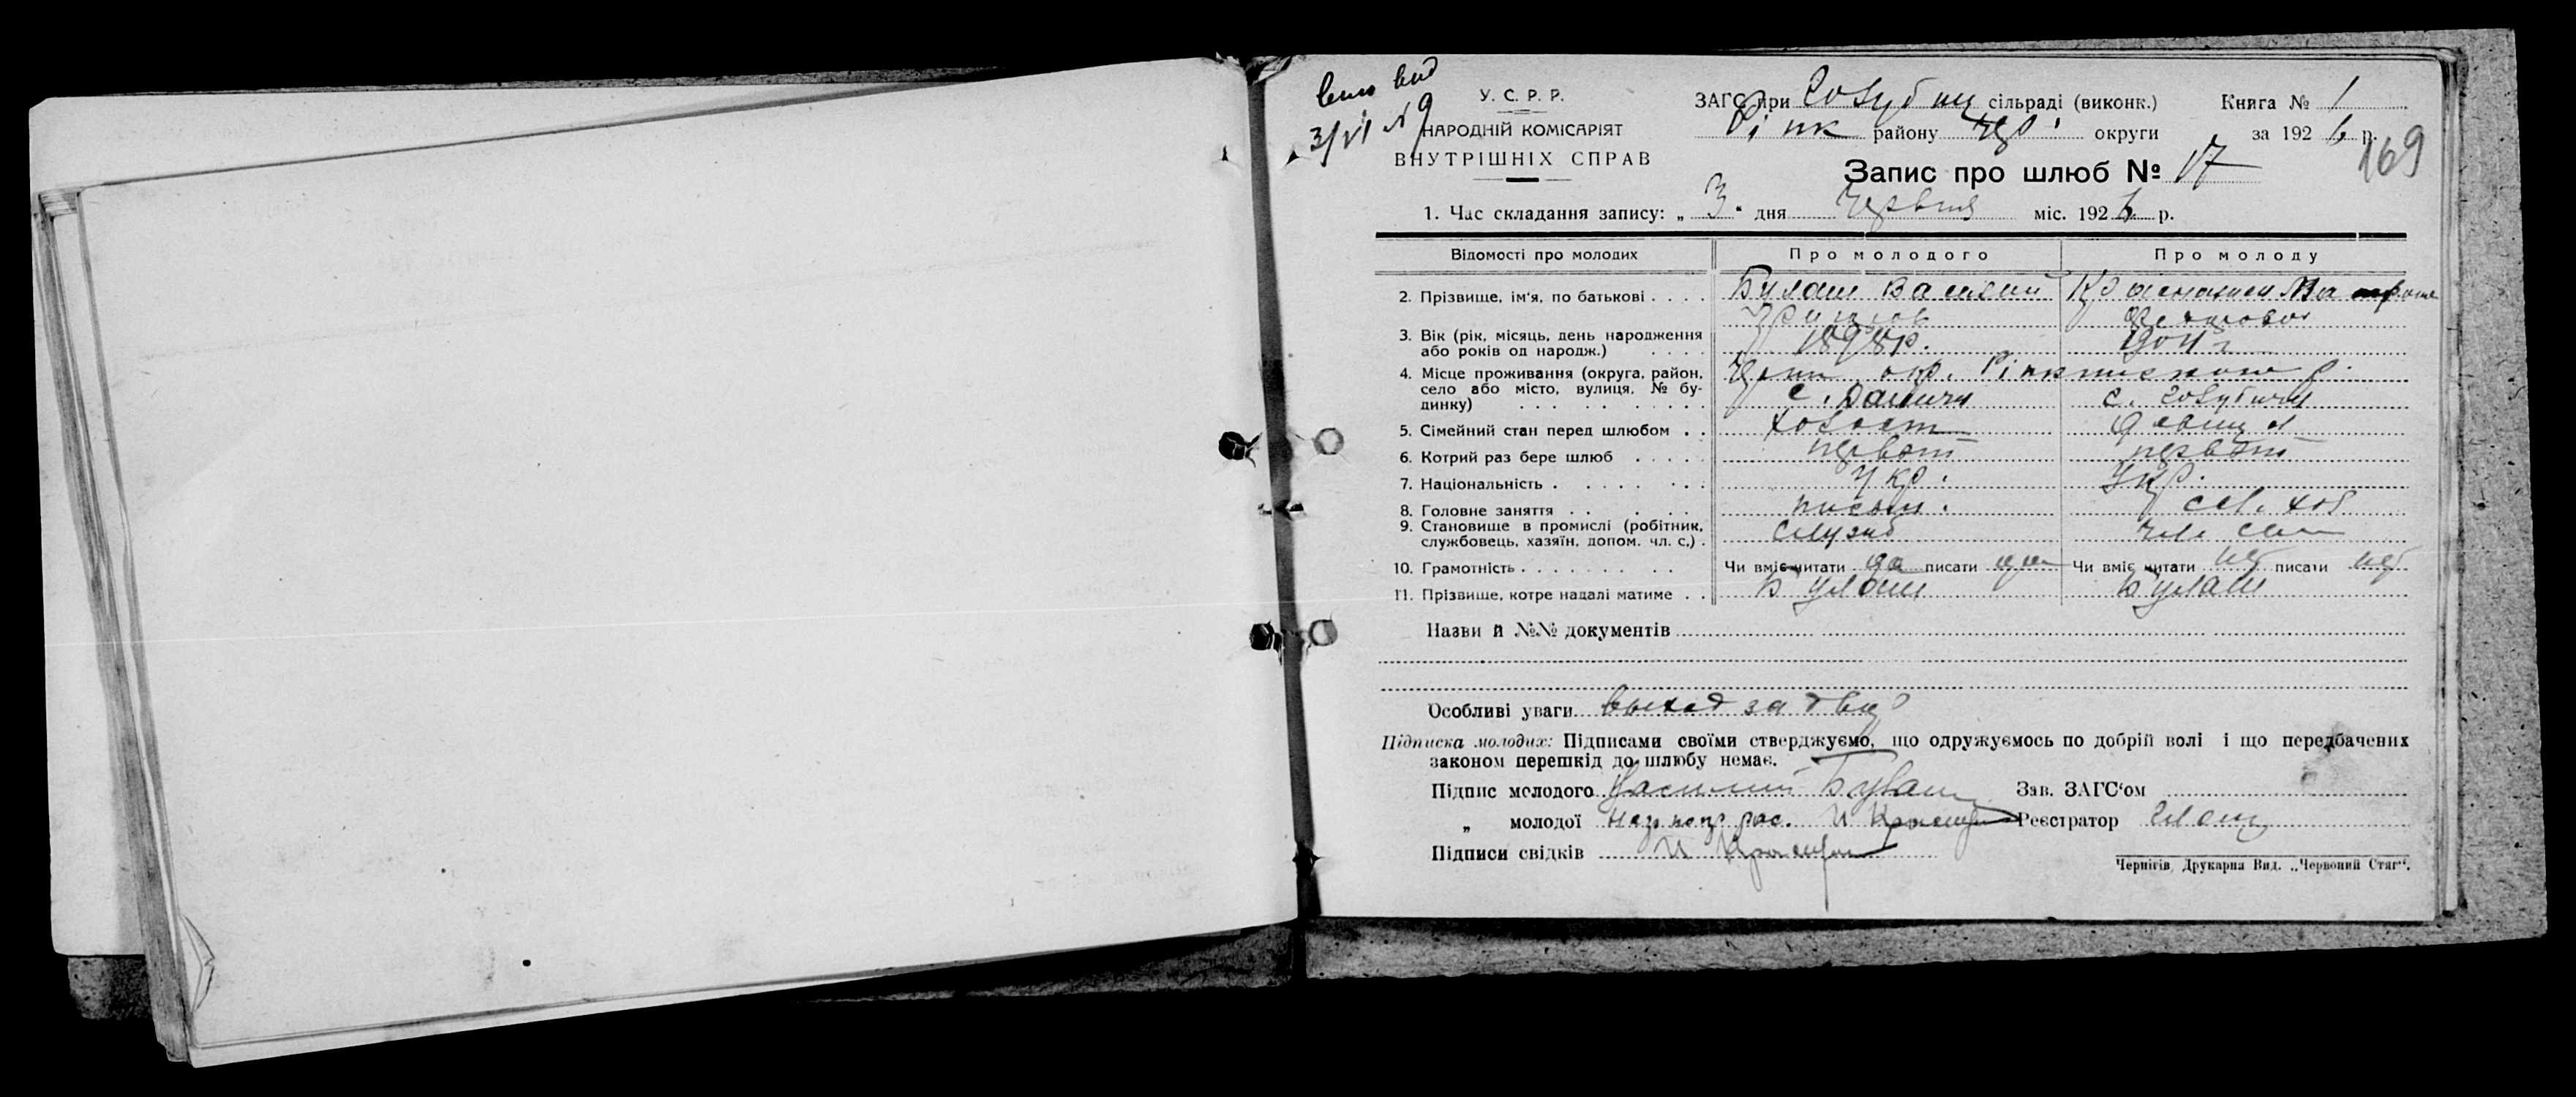 3/VI №9
У. С. Р. Р.
НАРОДНІЙ КОМІСАРІЯТ
ВНУТРІШНІХ СПРАВ
ЗАГС при Голубиц сільраді (виконк.) Книга № 1
Ріпк району Чер. округи за 1926 р.
169
Запис про шлюб № 17
1. Час складання запису: „3“ дня Червня міс. 1926 р.
Відомості про молодих Про молодого Про молоду
2. Прізвище, ім'я, по батькові Булаш Василий
3. Вік (рік, місяць, день народження
або років од народж.) 1898р. 1904 г
4. Місце проживання (округа, район, окр. Ріпкинского р.
село або місто, вулиця, № бу-
динку) с. с. Голубичи
5. Сімейний стан перед шлюбом холост девица
6. Котрий раз бере шлюб первый первый
7. Національність Укр. Укр.
8. Головне заняття писом. сел. хоз
9. Становище в промислі (робітник,
службовець, хазяїн, допом. чл. с.) служб чл. сем
10. Грамотність Чи вміє читати да писати да Чи вміє читати нет писати нет
11. Прізвище, котре надалі матиме Булаш Булаш
Назви й №№ документів
Особливі уваги выход за
Підписка молодих: Підписами своїми стверджуємо, що одружуємось по добрій волі і що передбачених
законом перешкід до шлюбу немає.
Підпис молодого Василий Булаш Зав. ЗАГС'ом
„ молодої Реєстратор
Підписи свідків
Чернігів, Друкарня Вид. „Червоний Стяг“.